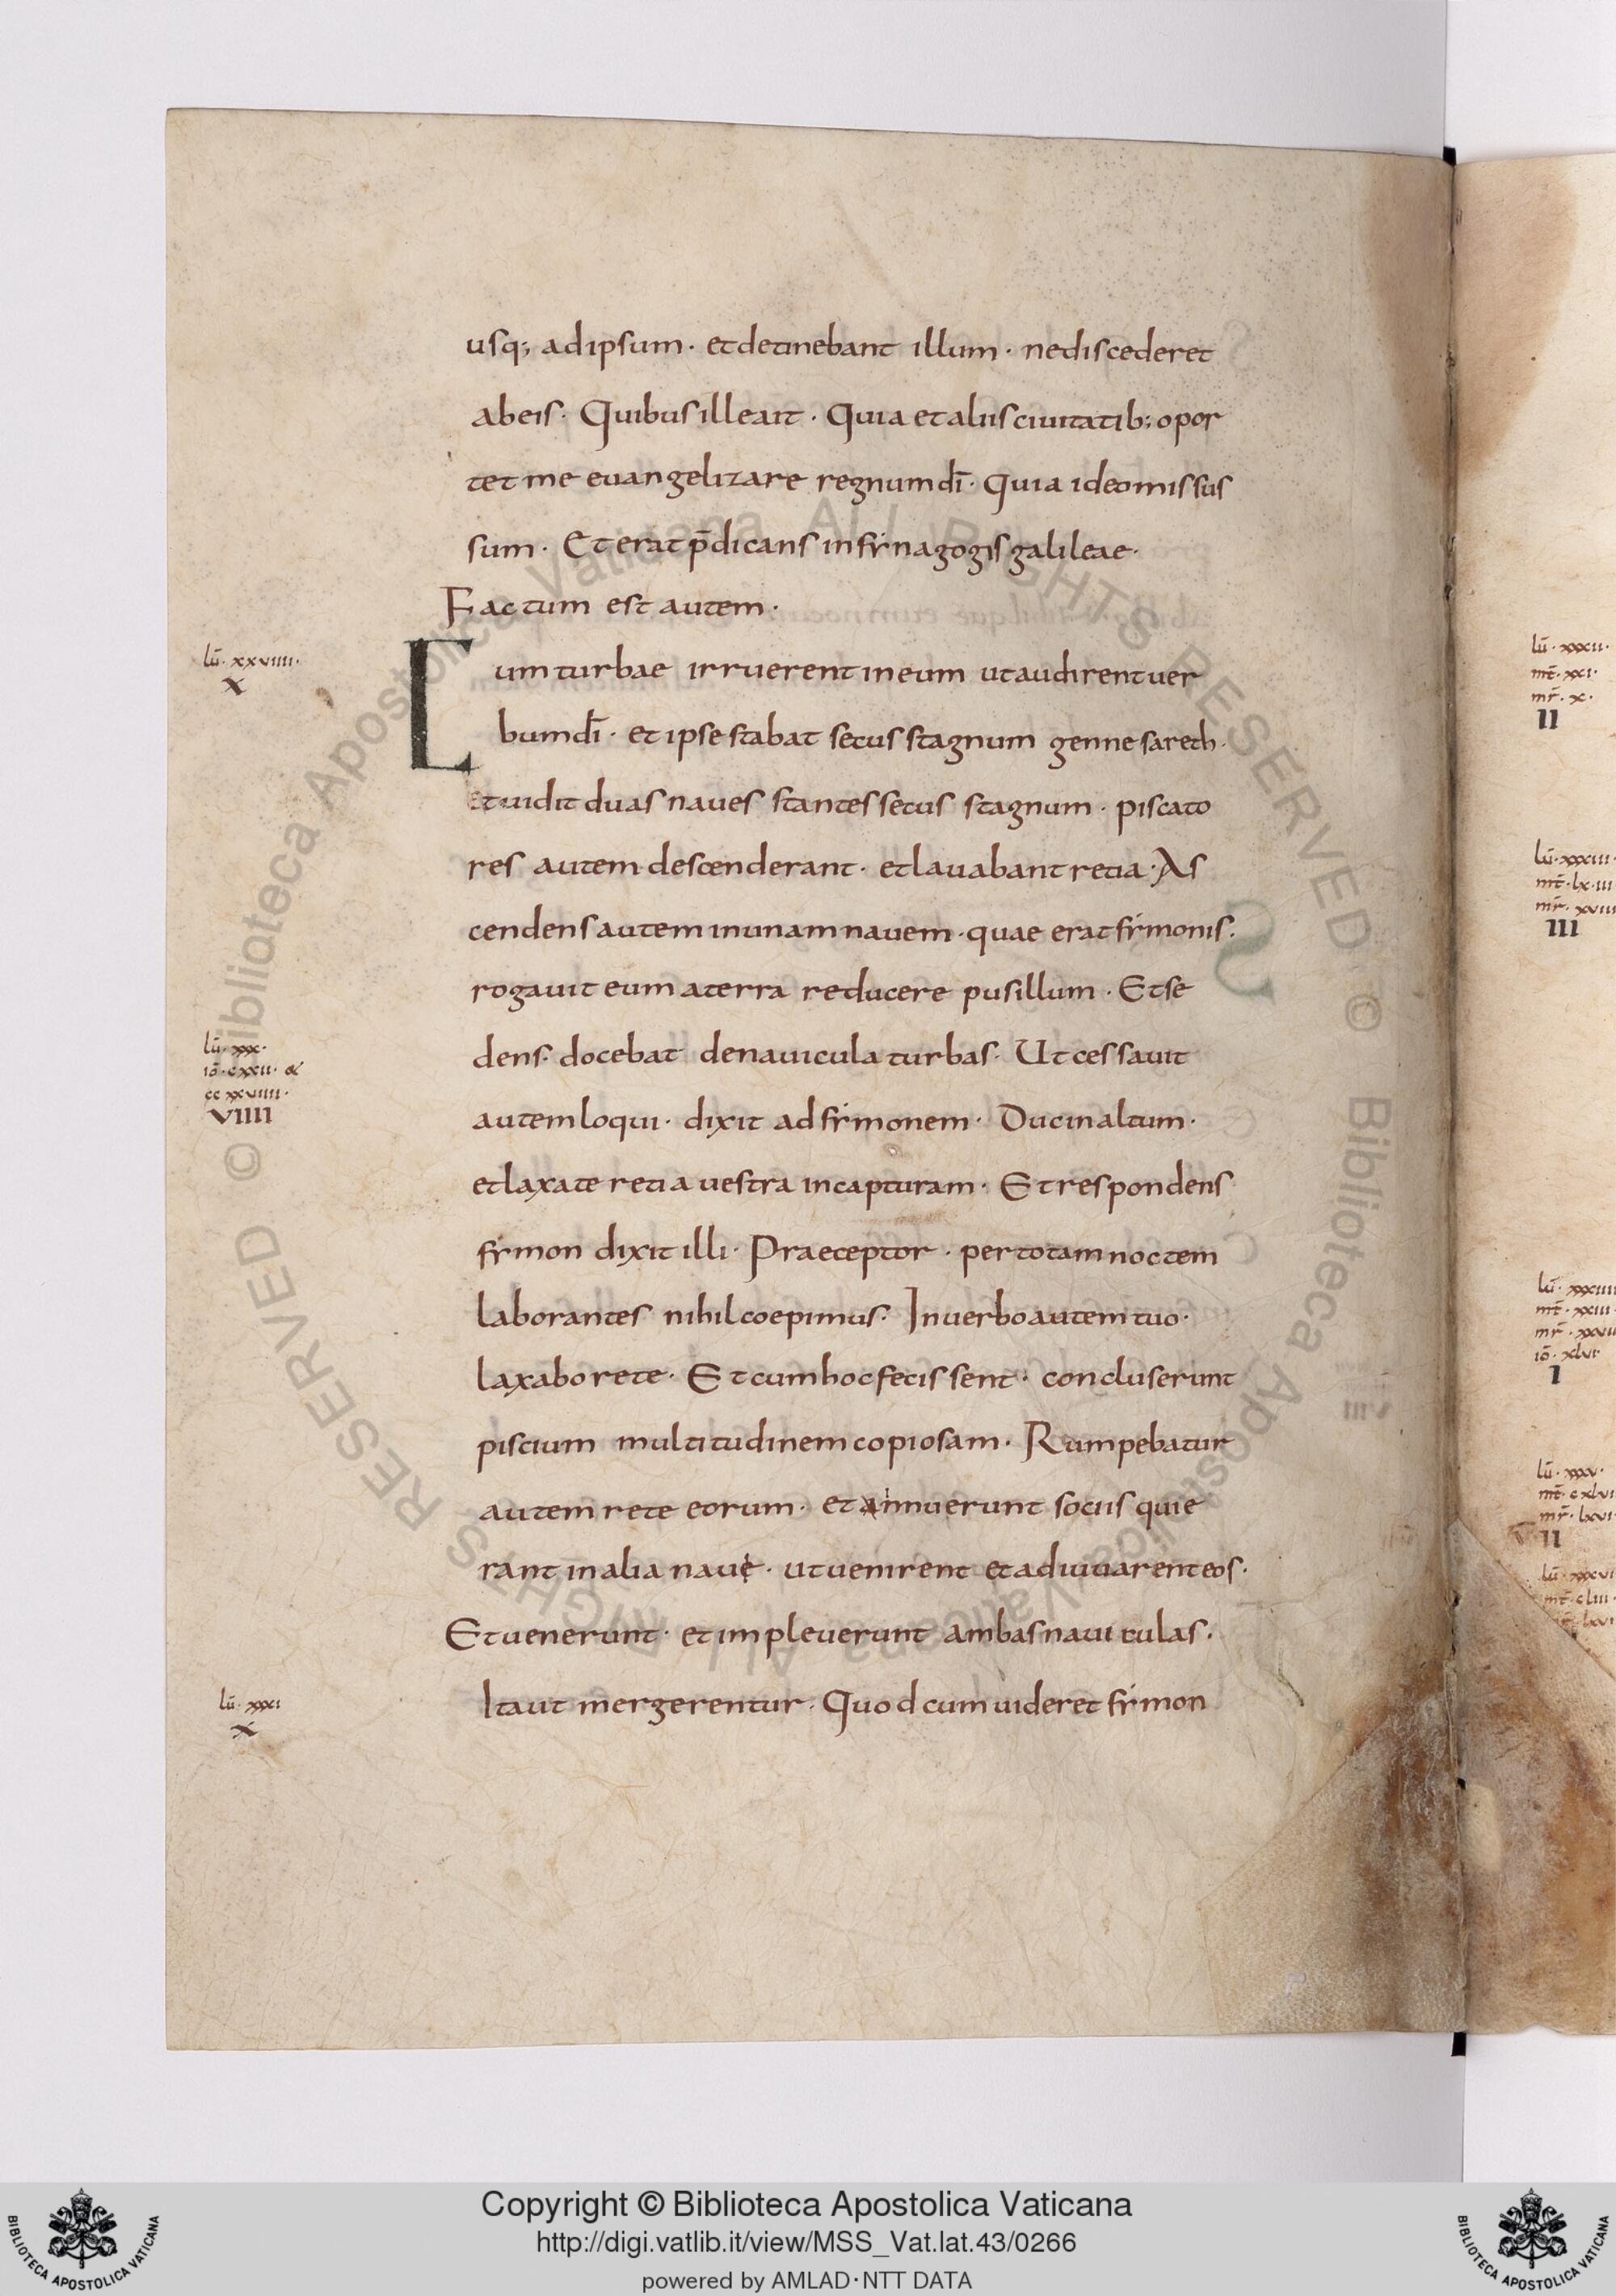 usq; ad ipsum · et detinebant illum · ne discederet
ab eis · Quibus ille ait · Quia et aliis ciuitatib; opor
tet me euangelizare regnum dī · Quia ideo missus
sum · Et erat p̄dicans in synagogis galileae ·
Factum est autem ·
lū · xxviiii ·
X
Cum turbae irruerent in eum ut audirent uer
bum dī · et ipse stabat secus stagnum gennesareth ·
et uidit duas naues stantes secus stagnum · piscato
res autem descenderant · et lauabant retia · As
cendens autem in unam nauem · quae erat symonis ·
rogauit eum a terra reducere pusillum · Et se
dens · docebat de nauicula turbas · Ut cessauit
lū · xxx ·
iō · cxxii · &
ccxxviiii ·
VIIII
autem loqui · dixit ad symonem · Duc in altum ·
et laxate retia uestra in capturam · Et respondens
symon dixit illi · Praeceptor · per totam noctem
laborantes nihil coepimus · In uerbo autem tuo ·
laxabo rete · Et cum hoc fecissent · concluserunt
piscium multitudinem copiosam · Rumpebatur
autem rete eorum · et annuerunt sociis qui e
rant in alia naue · ut uenirent et adiuuarent eos ·
Et uenerunt · et impleuerunt ambas nauiculas ·
lū · xxxi
X
Ita ut mergerentur · Quod cum uideret symon
lū · xxxii ·
mt̄ · xxi ·
mr̄ · x ·
II
lū · xxxiii
mt̄ · lxiii
mr̄ · xviii
III
I
lū · xxxv ·
II
© Biblioteca Apostolica Vaticana ALL RIGHTS RESERVED © Biblioteca Apostolica Vaticana ALL RIGHTS RESERVED
Copyright © Biblioteca Apostolica Vaticana
http://digi.vatlib.it/view/MSS_Vat.lat.43/0266
powered by AMLAD·NTT DATA
BIBLIOTECA APOSTOLICA VATICANA
BIBLIOTECA APOSTOLICA VATICANA